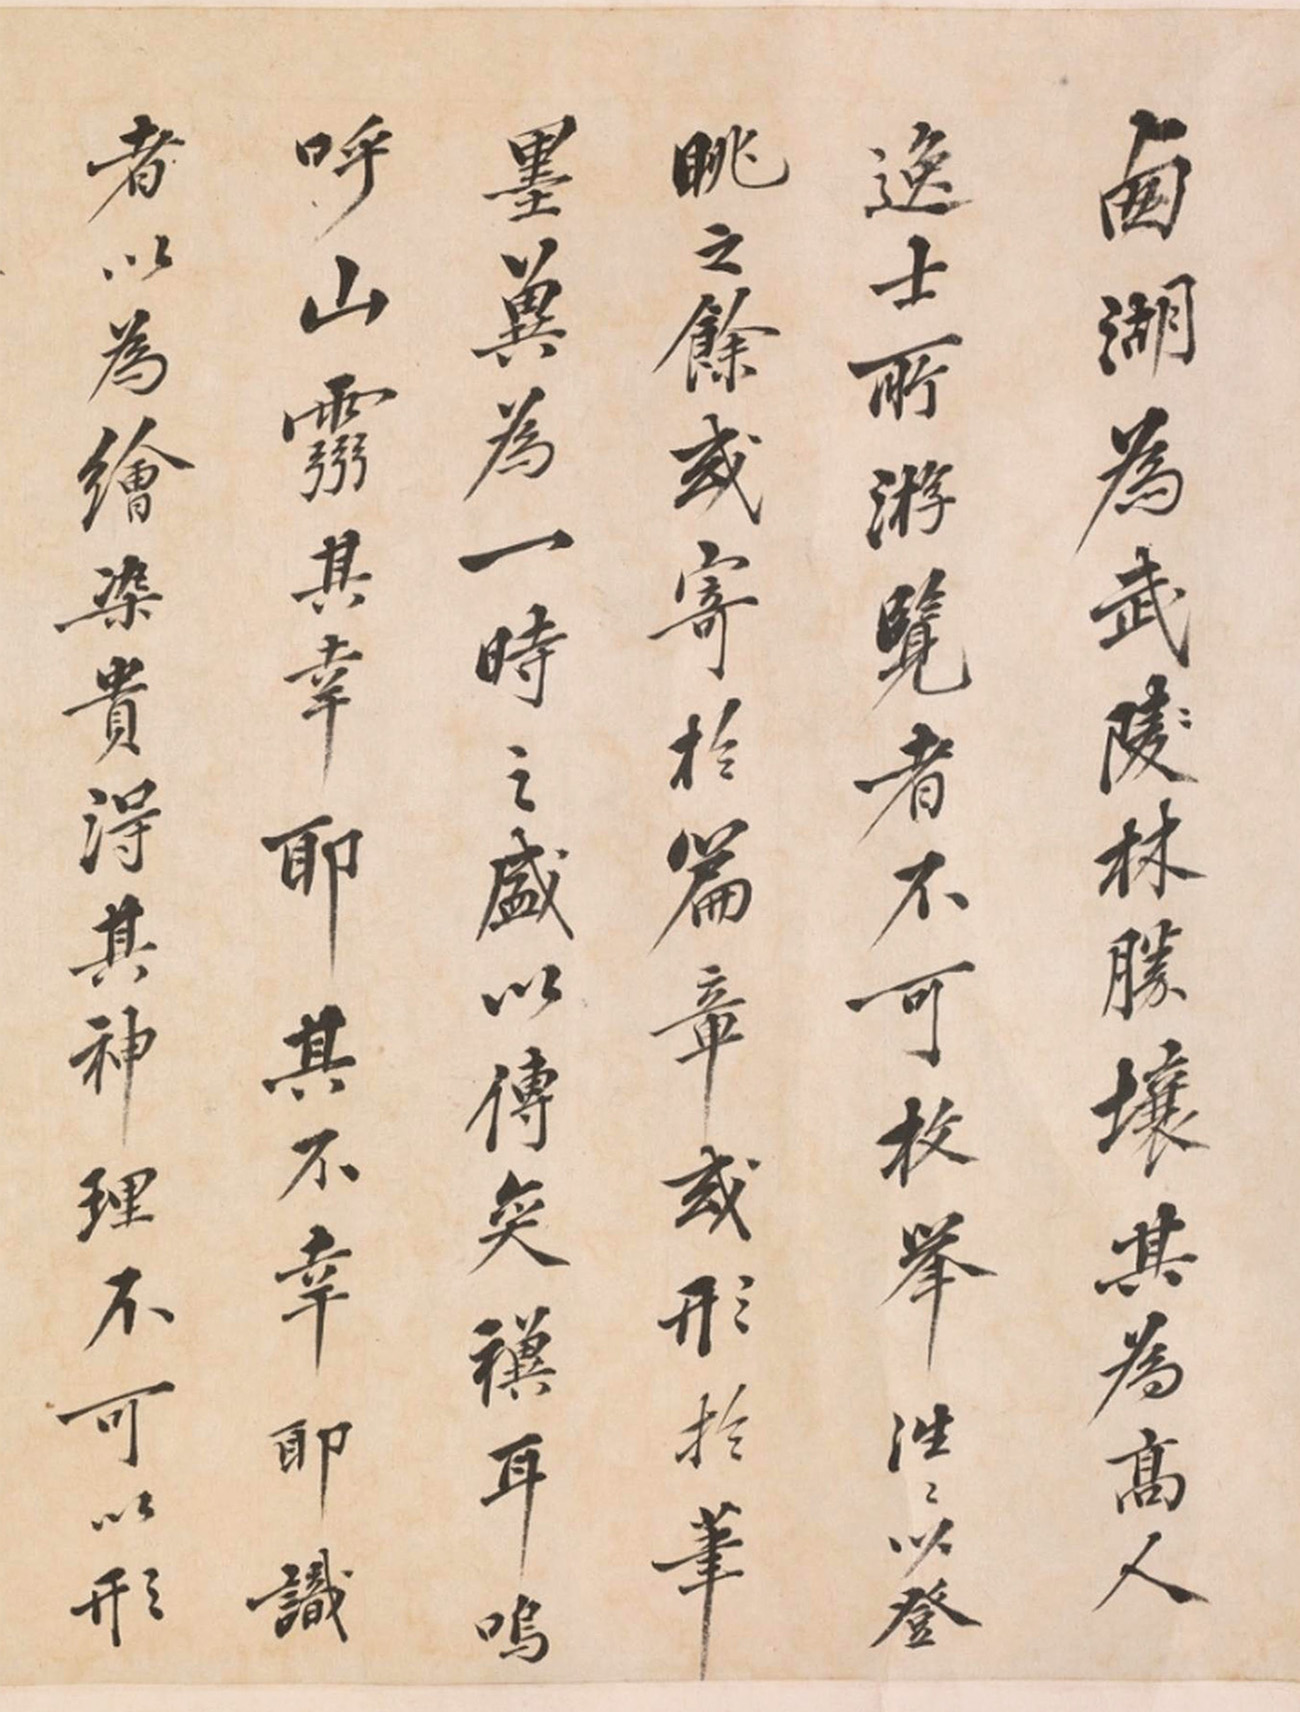 西湖為武陵林勝壤其為高人
逸士所游覽者不可枚舉往〻以登
眺之餘或寄於篇章或形於筆
墨冀為一時之盛以傳奕禩耳嗚
呼山靈其幸耶其不幸耶識
者以為繪染貴得其神理不可以形